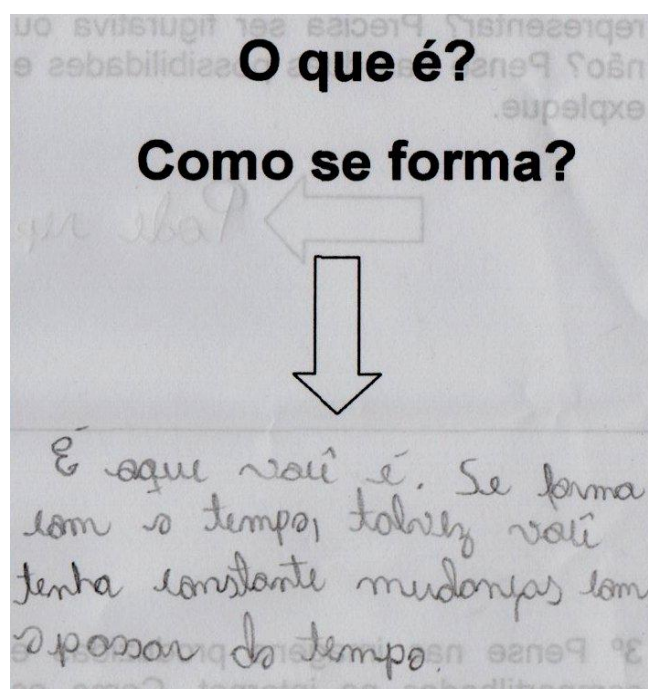 O que é?
Como se forma?
É aque você é. Se forma
com o tempo, talvez você
tenha constante mudanças com
o passar do tempo.